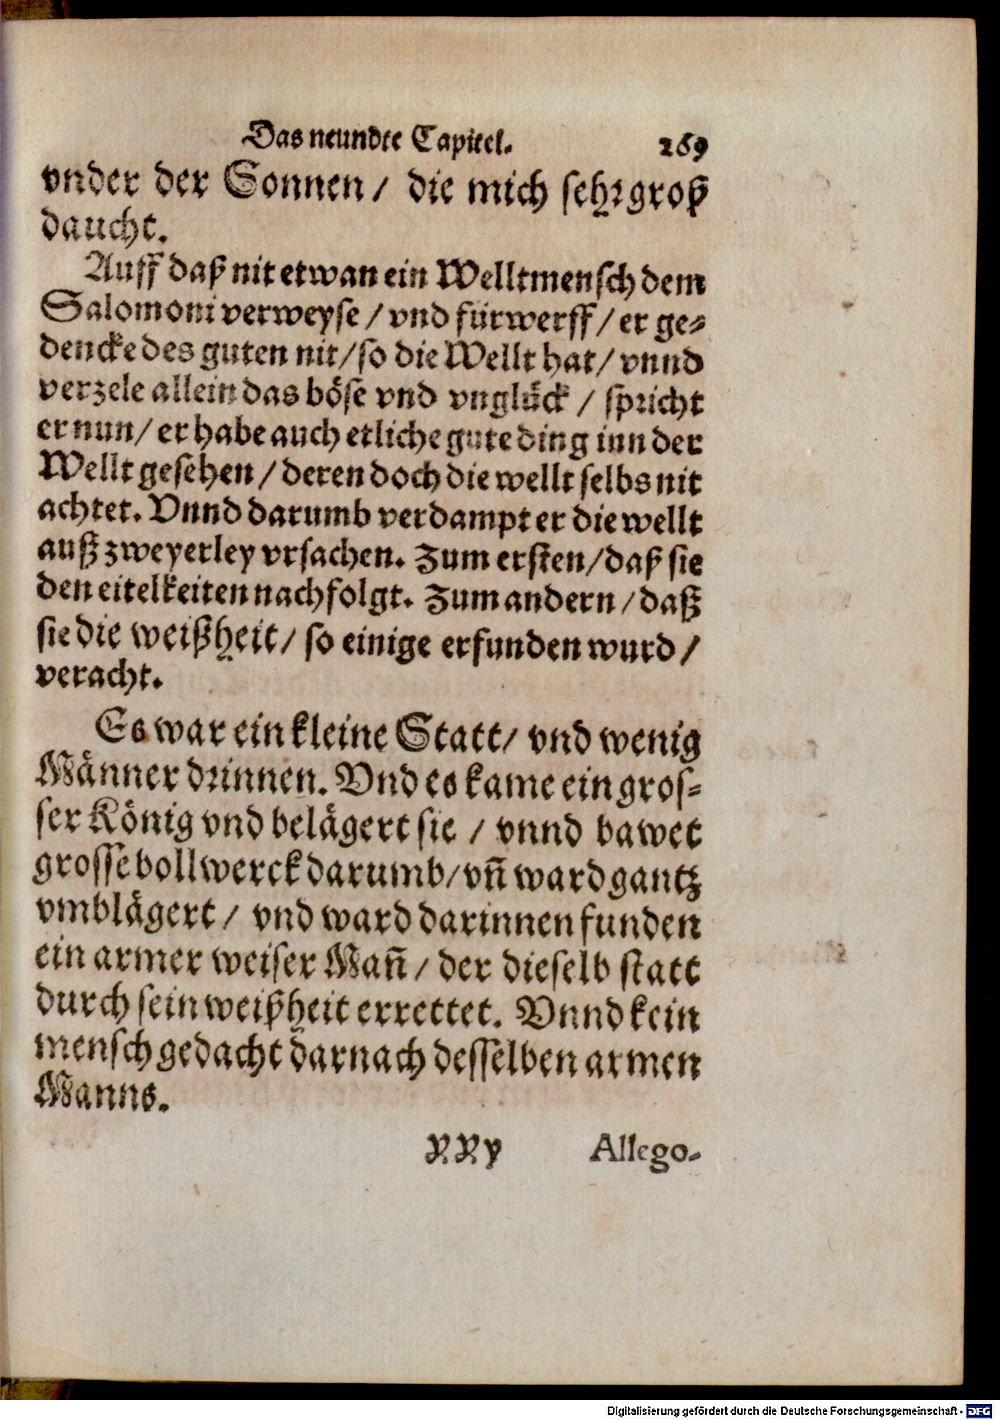 Das neundte Capitel. 269
vnder der Sonnen / die mich sehr groß
daucht.
Auff daß nit etwan ein Welltmensch dem
Salomoni verweyse / vnd fürwerff / er ge-
dencke des guten nit / so die Wellt hat / vnnd
verzele allein das böse vnd vnglück / spricht
er nun / er habe auch etliche gute ding inn der
Wellt gesehen / deren doch die wellt selbs nit
achtet. Vnnd darumb verdampt er die wellt
auß zweyerley vrsachen. Zum ersten / daß sie
den eitelkeiten nachfolgt. Zum andern / daß
sie die weißheit / so einige erfunden wurd /
veracht.
Es war ein kleine Statt / vnd wenig
Männer drinnen. Vnd es kame ein gros-
ser König vnd belägert sie / vnnd bawet
grosse bollwerck darumb / vñ ward gantz
vmblägert / vnd ward darinnen funden
ein armer weiser Mañ / der dieselb statt
durch sein weißheit errettet. Vnnd kein
mensch gedacht darnach desselben armen
Manns.
XXy Allego-
Digitalisierung gefördert durch die Deutsche Forschungsgemeinschaft - DFG